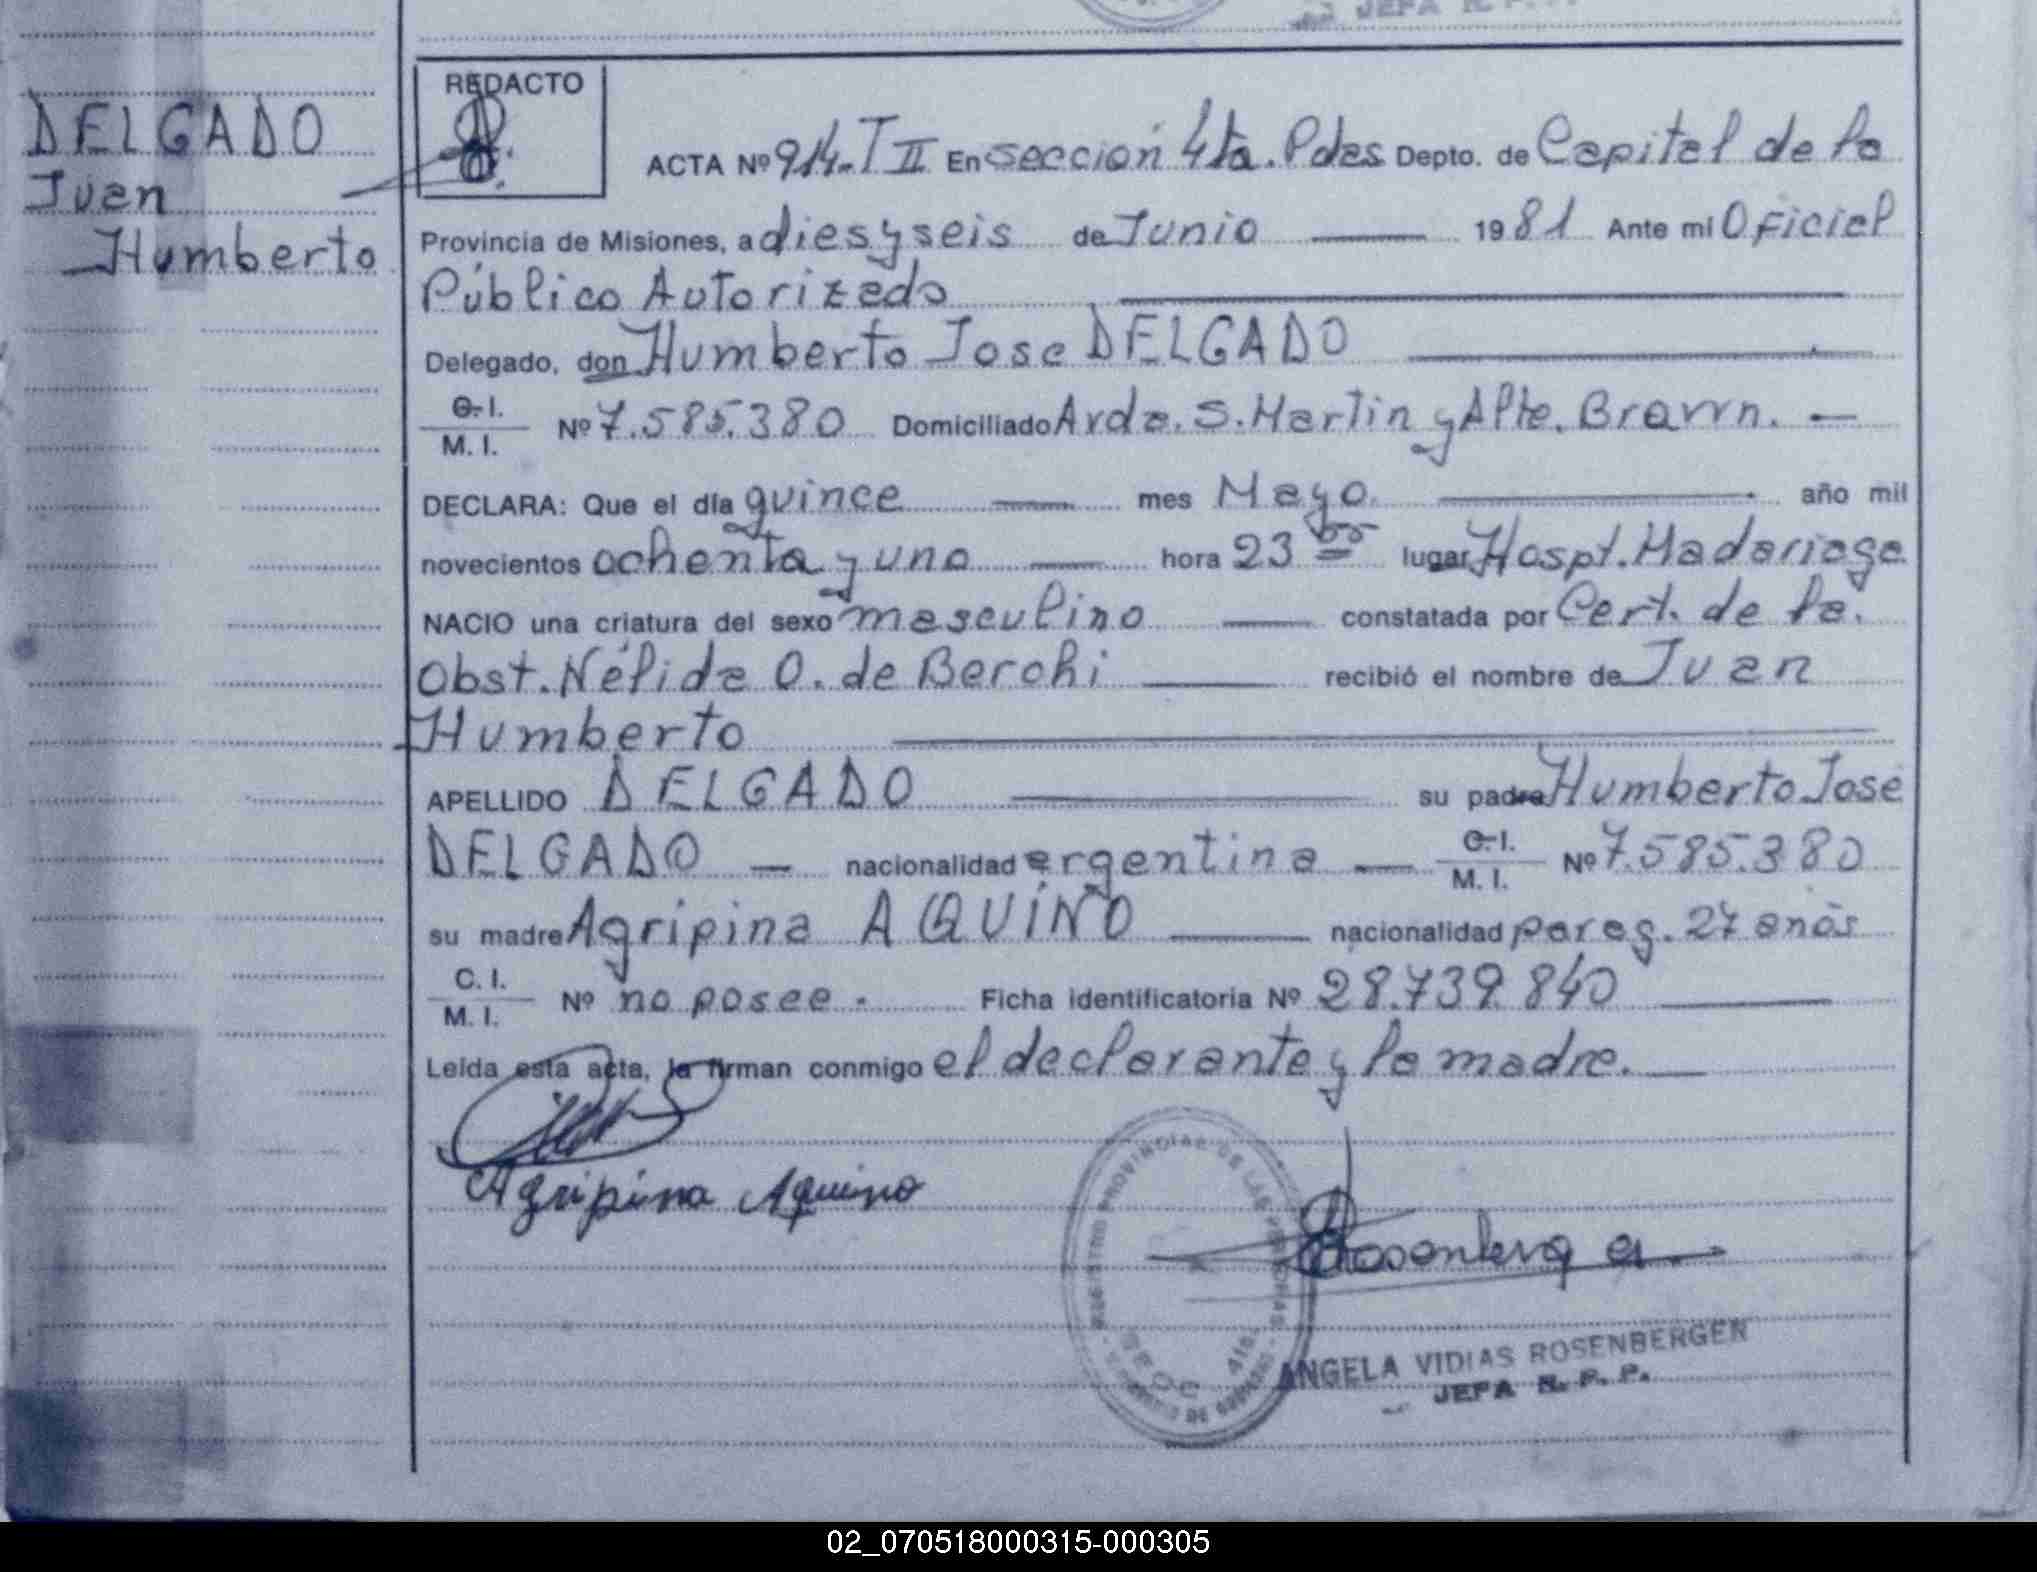 JEFA R. P. P.
DELGADO
Juan
Humberto
REDACTO
ACTA Nº 914-T II En sección 4ta. Pdas Depto. de Capital de la
Provincia de Misiones, a diesyseis de Junio 1981 Ante mi Oficial
Público Autorizado
Delegado, don Humberto Jose DELGADO
C. I.
M. I. Nº 7.585.380 Domiciliado Avda. S. Martin y Alte. Brown.
DECLARA: Que el día quince mes Mayo. año mil
novecientos ochenta y uno hora 23 50 lugar Hospt. Madariaga
NACIO una criatura del sexo masculino constatada por Cert. de la.
Obst. Nélida O. de Berchi recibió el nombre de Juan
Humberto
APELLIDO DELGADO su padre Humberto José
DELGADO nacionalidad argentina C. I. M. I. Nº 7.585.380
su madre Agripina AQUINO nacionalidad parag. 27 anos
C. I.
M. I. Nº no posee. Ficha identificatoria Nº 28.739.840
Leída esta acta, la firman conmigo el declarante y la madre.
Agripina Aquino
REGISTRO PROVINCIAL DE LAS PERSONAS
SECC. 4ta.
ANGELA VIDIAS ROSENBERGEN
JEFA R. P. P.
02_070518000315-000305